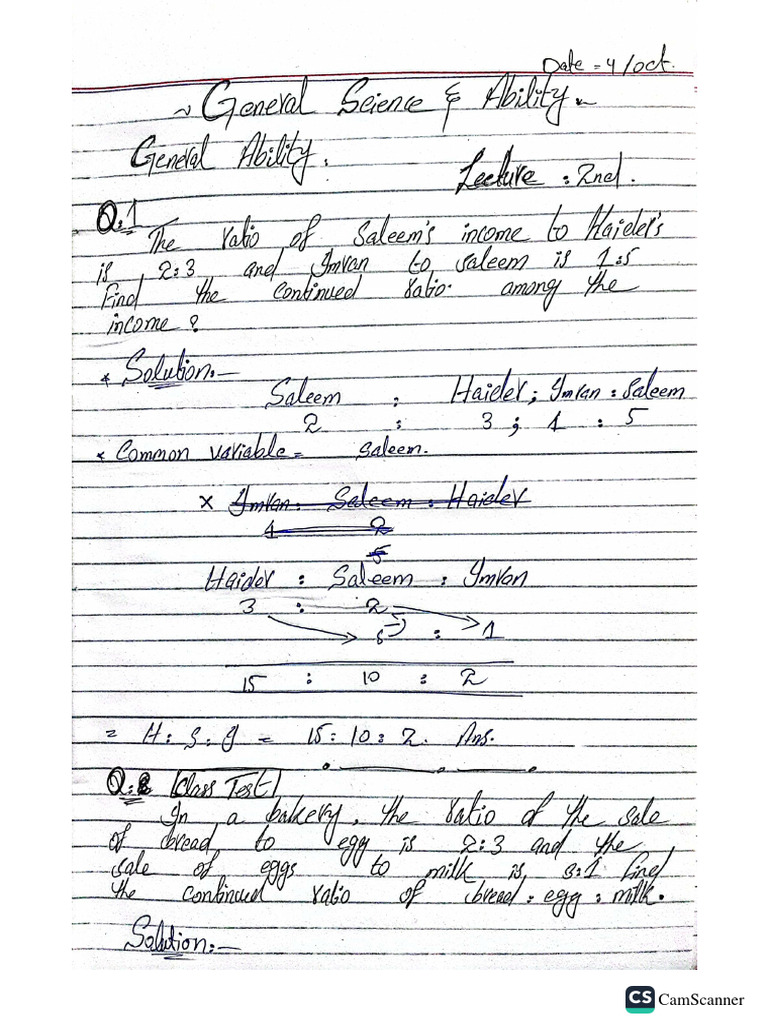 Date = 4/oct.
~ General Science & Ability ~
General Ability.
Lecture : 2nd.
Q.1
The ratio of Saleem's income to Haider's
is 2:3 and Imran to saleem is 1:5
Find the continued ratio. among the
income?
* Solution:-
Saleem : Haider ; Imran : Saleem
2 : 3 ; 1 : 5
* Common variable = saleem.
x Imran : Saleem : Haider
1 2
5
Haider : Saleem : Imran
3 : 2
5 : 1
15 : 10 : 2
= H : S : I = 15 : 10 : 2. Ans.
Q.2 [Class Test]
In a bakery, the ratio of the sale
of bread to egg is 2:3 and the
sale of eggs to milk is 3:1 find
the continued ratio of bread : egg : milk.
Solution:-
CS CamScanner